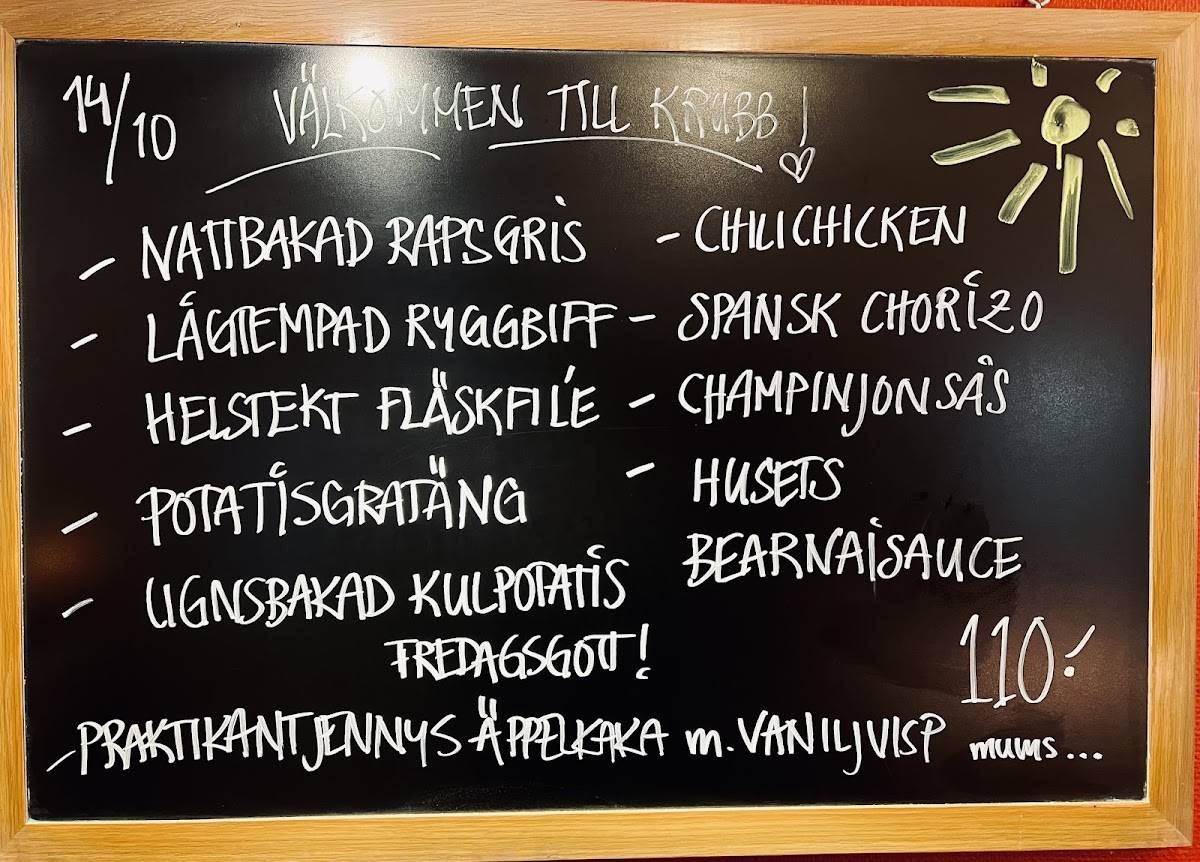 14/10
VÄLKOMMEN TILL KRUBB!
- NATTBAKAD RAPSGRIS
- LÅGTEMPAD RYGGBIFF
- HELSTEKT FLÄSKFILÉ
- POTATISGRATÄNG
- UGNSBAKAD KULPOTATIS
FREDAGSGOTT!
- CHILICHICKEN
- SPANSK CHORIZO
- CHAMPINJONSÅS
- HUSETS
BEARNAISAUCE
110:-
- PRAKTIKANTJENNYS ÄPPELKAKA m. VANILJVISP mums...